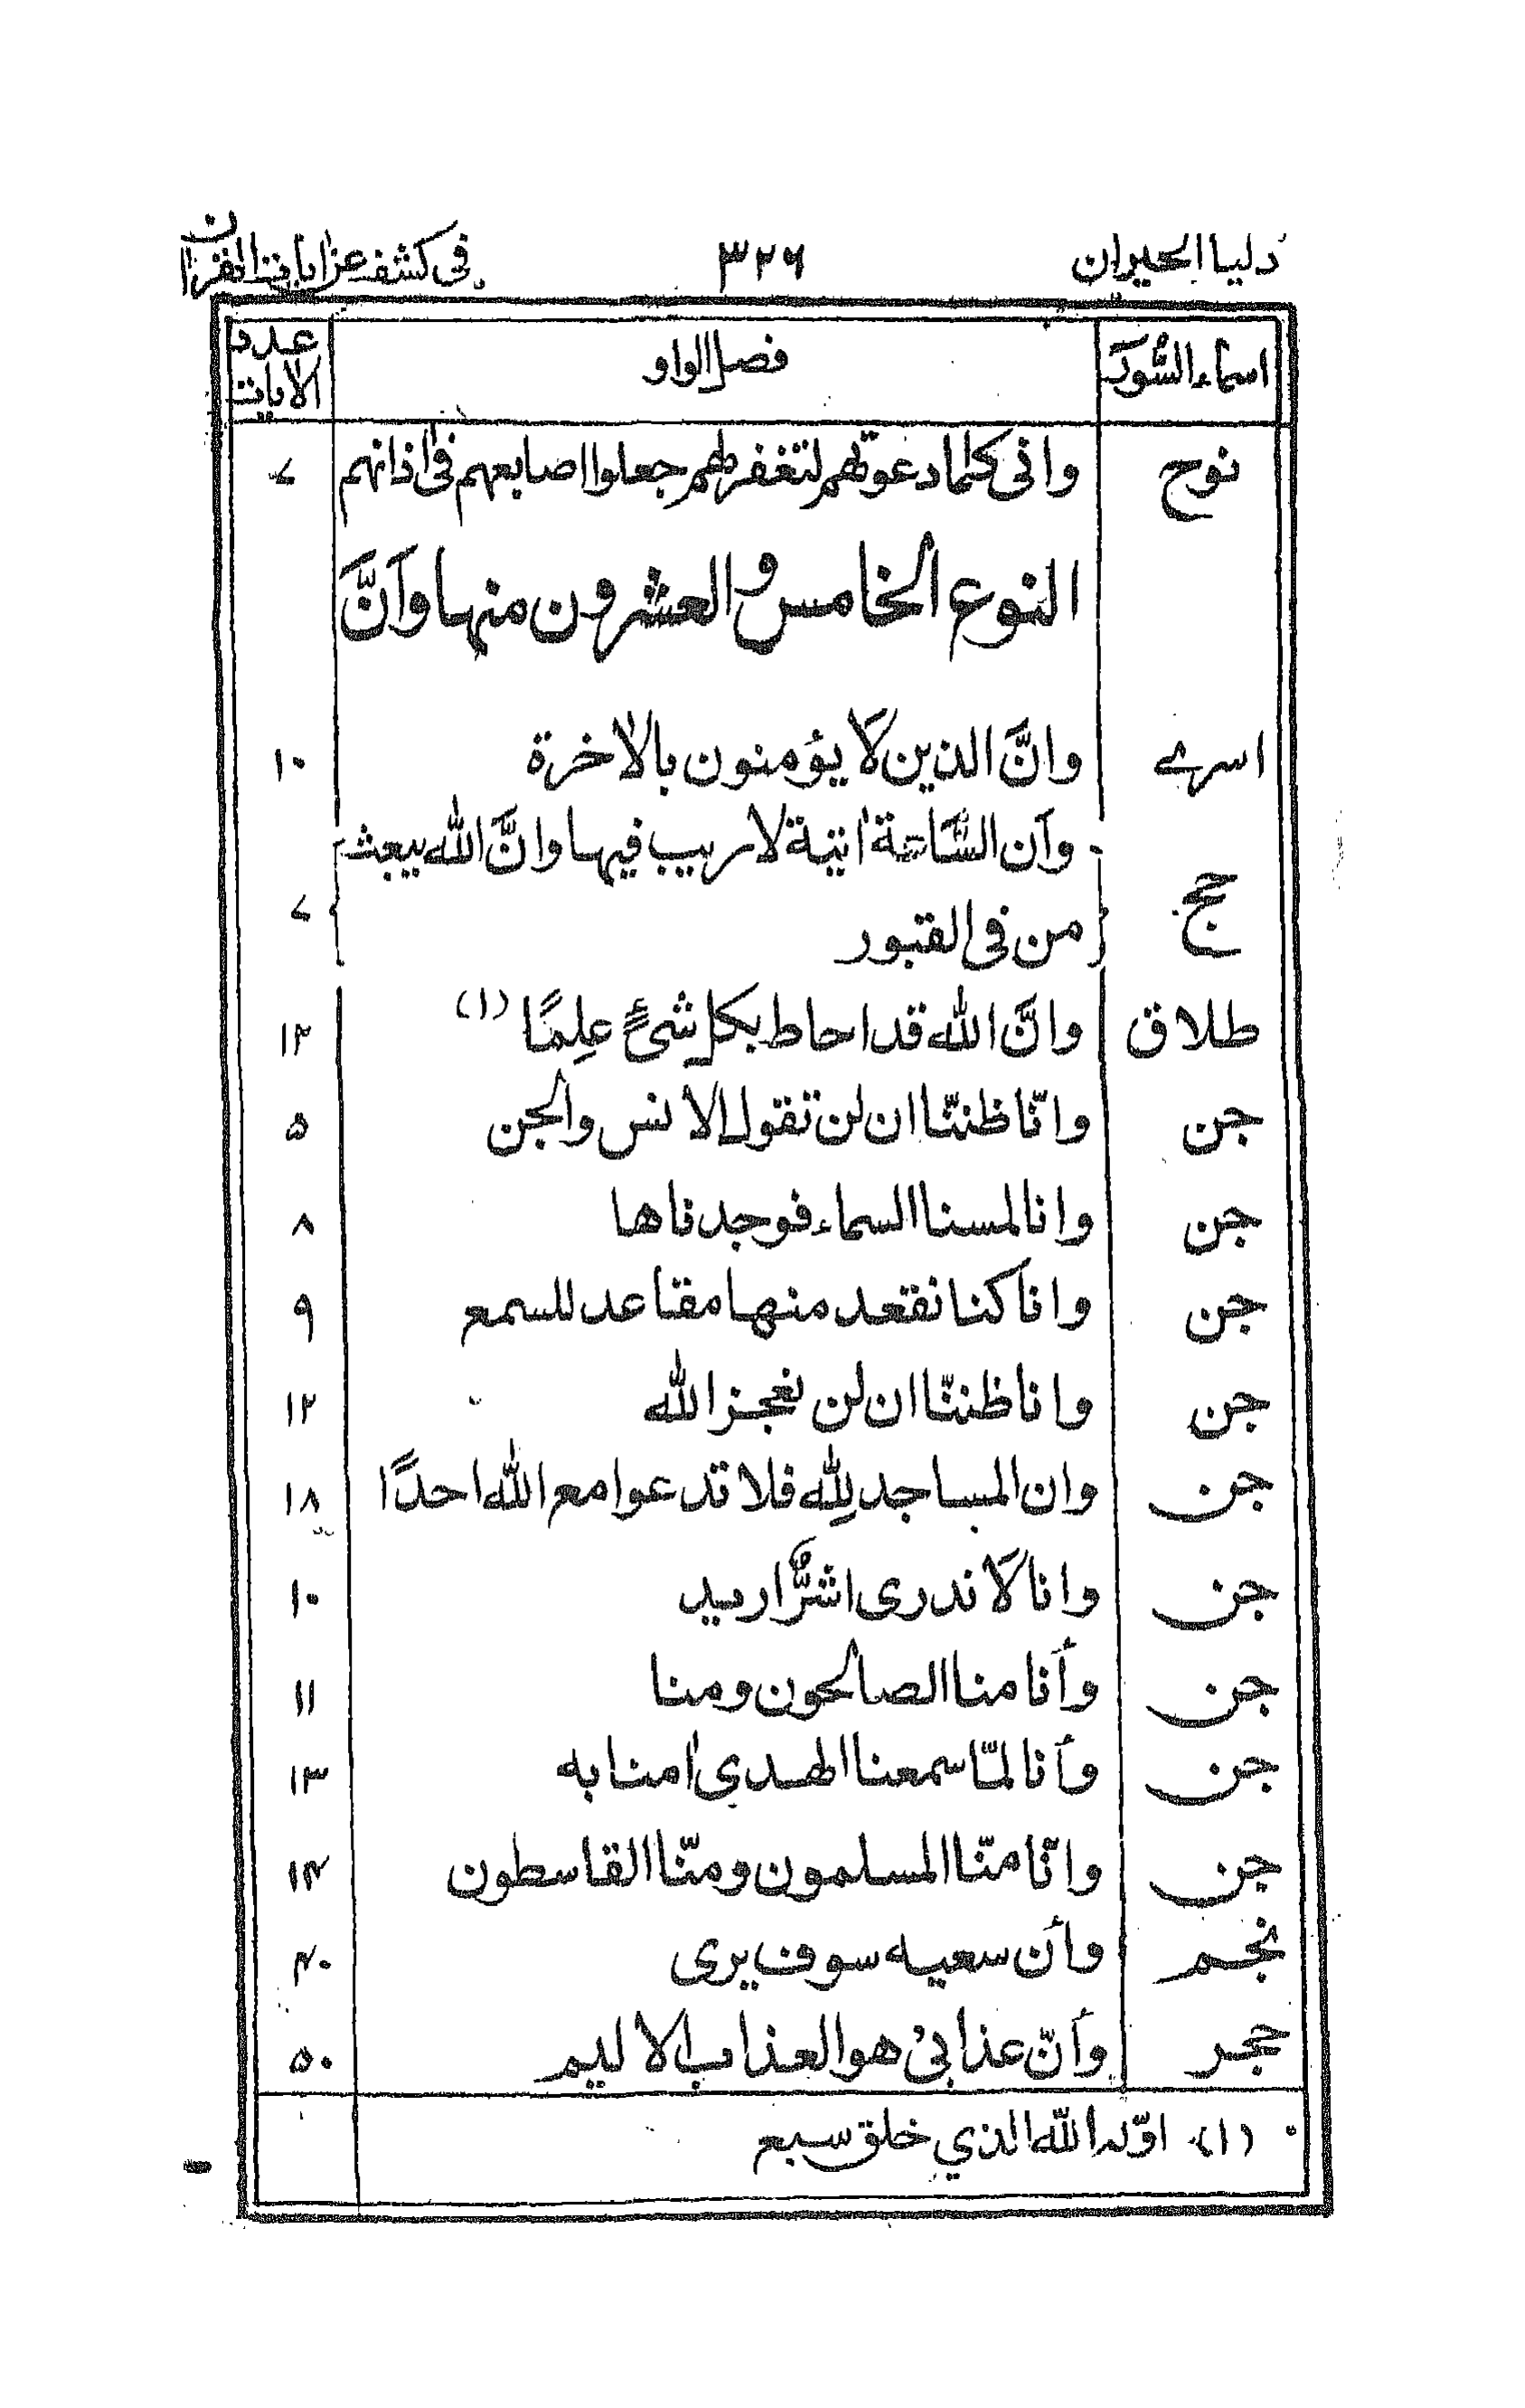 دليل الحيران ٣٢٦ في كشف عن ايات القران
اسماء السُّور فصل الواو عدد الايات
نوح وانى كلما دعوتهم لتغفر لهم جعلوا اصابعهم فى اٰذانهم ٧
النوع الخامس و العشرون منها وَاَنَّ
اسرے وانَّ الذين لَا يؤمنون بالاٰخرة ١٠
وَاَن السَّاعة اٰتية لا ريب فيها وانَّ الله يبعث
حج من فى القبور ٧
طلاق وانَّ الله قد احاط بكل شئٍ علِمًا (١) ١٢
جن وانّا ظننّا ان لن تقول الانس والجن ۵
جن وانا لمسنا السماء فوجدناها ٨
جن وانا كنا نقعد منها مقاعد للسمع ٩
جن وانا ظننّا ان لن نعجز الله ١٢
جن وان المساجد لِلّٰه فلا تدعوا مع الله احدًا ١٨
جن وانا لَا ندرى اشرٌّ اريد ١٠
جن وأنا منا الصالحون ومنا ١١
جن وأنا لمّا سمعنا الهدى اٰمنا به ١٣
جن وانّا منّا المسلمون ومنّا القاسطون ١۴
نجم وأن سعيه سوف يرى ۴٠
حجر وأنّ عذابى هو العذاب الاليم ۵٠
(١) اوّله الله الذي خلق سبع